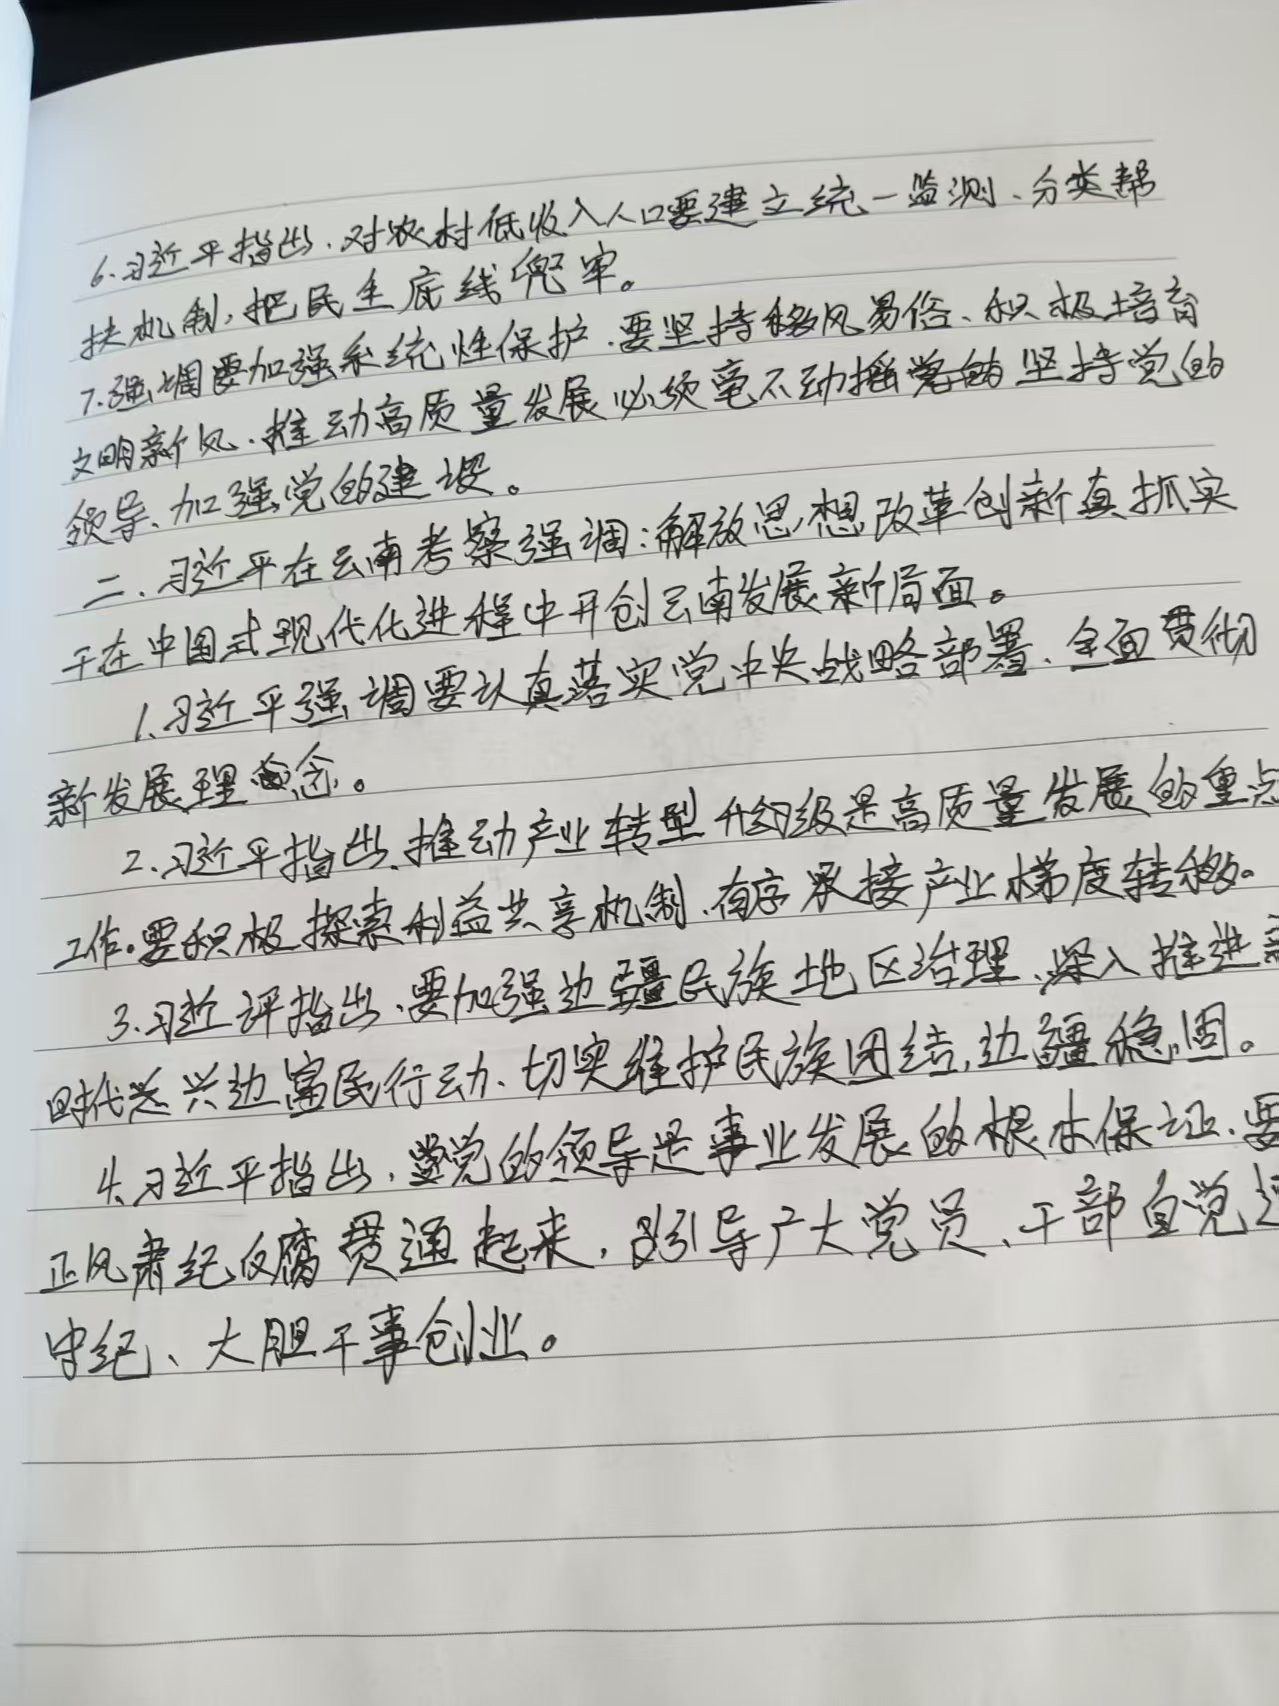 6.习近平指出、对农村低收入人口要建立统一监测、分类帮
扶机制,把民生底线兜牢。
7.强调要加强系统性保护、要坚持移风易俗、积极培育
文明新风、推动高质量发展必须毫不动摇坚持党的
领导、加强党的建设。
二、习近平在云南考察强调:解放思想改革创新真抓实
干在中国式现代化进程中开创云南发展新局面。
1.习近平强调要认真落实党中央战略部署、全面贯彻
新发展理念。
2.习近平指出、推动产业转型升级是高质量发展的重点
工作。要积极探索利益共享机制、有序承接产业梯度转移。
3.习近评指出、要加强边疆民族地区治理、深入推进新
时代兴边富民行动、切实维护民族团结,边疆稳固。
4.习近平指出,党的领导是事业发展的根本保证、要
正风肃纪反腐贯通起来,引导广大党员、干部自觉
守纪、大胆干事创业。